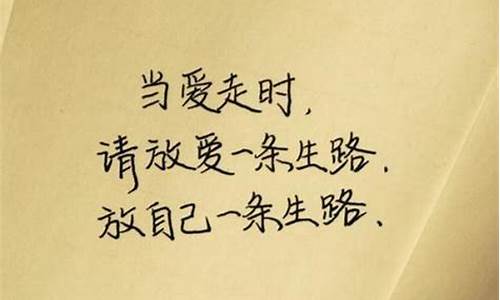 当爱走时,
请放爱一条生路.
放自己一条生路、